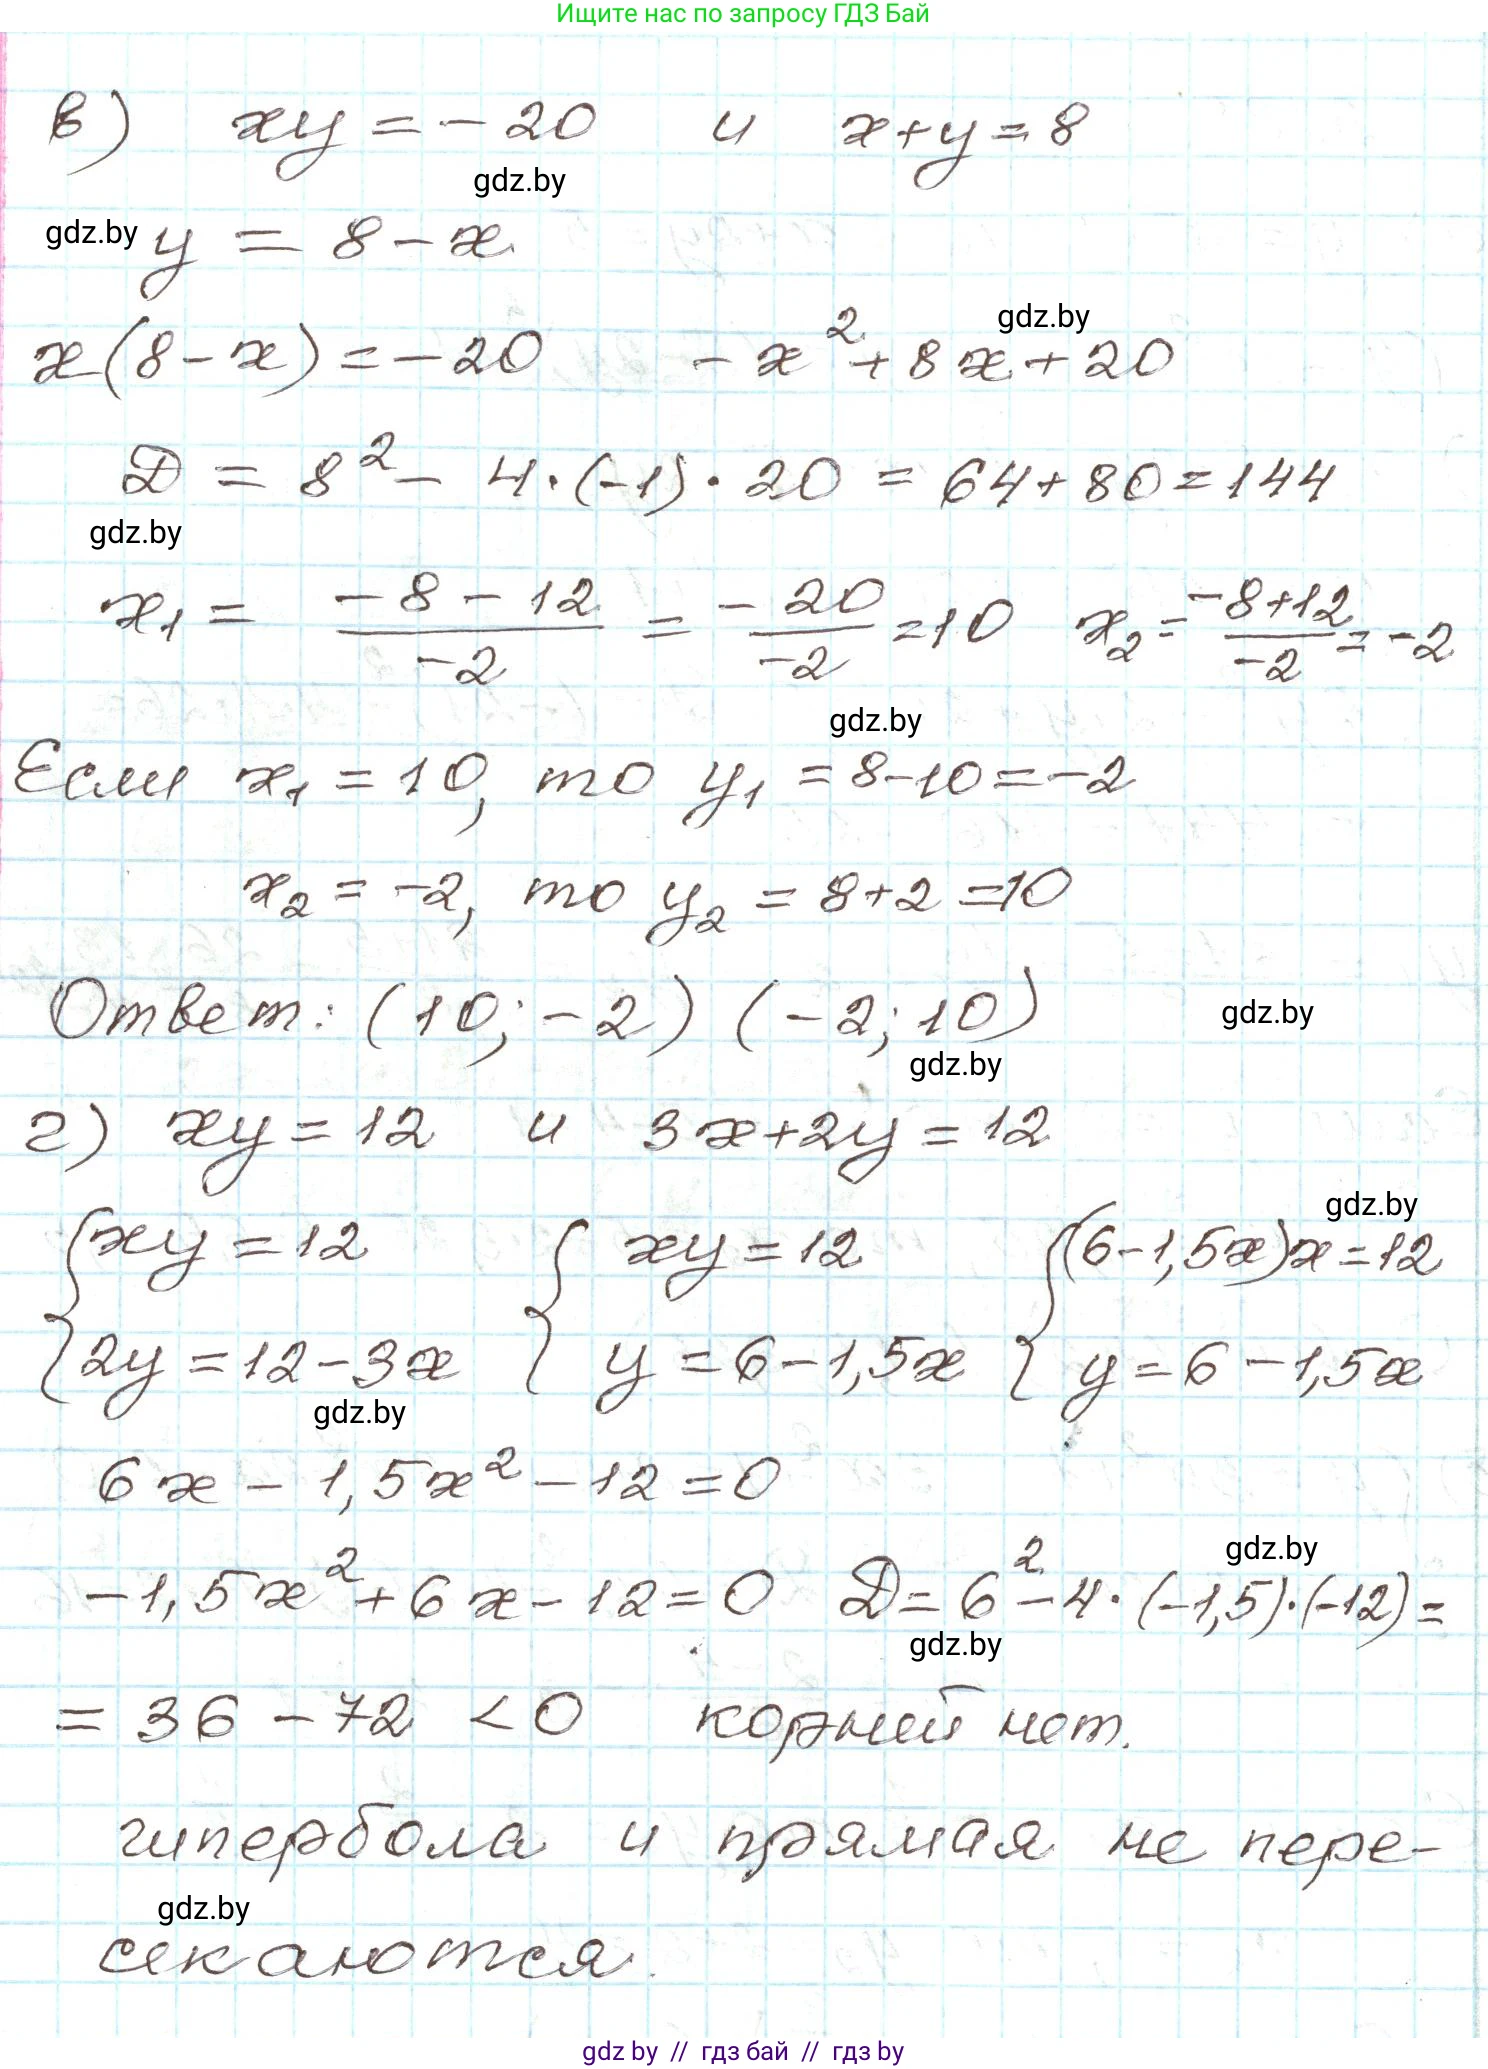 Ищите нас по запросу ГДЗ Бай
в) xy = -20 и x+y=8
gdz.by
gdz.by y = 8-x
gdz.by
x(8-x)=-20 -x²+8x+20
D = 8²- 4·(-1)·20 = 64+80=144
gdz.by
x₁ = \frac{-8-12}{-2} = \frac{-20}{-2} =10 x₂=\frac{-8+12}{-2}=-2
gdz.by
Если x₁=10, то y₁=8-10=-2
x₂=-2, то y₂=8+2=10
Ответ: (10;-2) (-2;10) gdz.by
gdz.by
г) xy=12 и 3x+2y=12
gdz.by
{xy=12 {xy=12 {(6-1,5x)x=12
{2y=12-3x {y=6-1,5x {y=6-1,5x
gdz.by
6x-1,5x²-12=0
gdz.by
-1,5x²+6x-12=0 D=6²-4·(-1,5)·(-12)=
gdz.by
=36-72 <0 корней нет.
гипербола и прямая не пере-
gdz.by
секаются.
gdz.by // гдз бай // гдз by